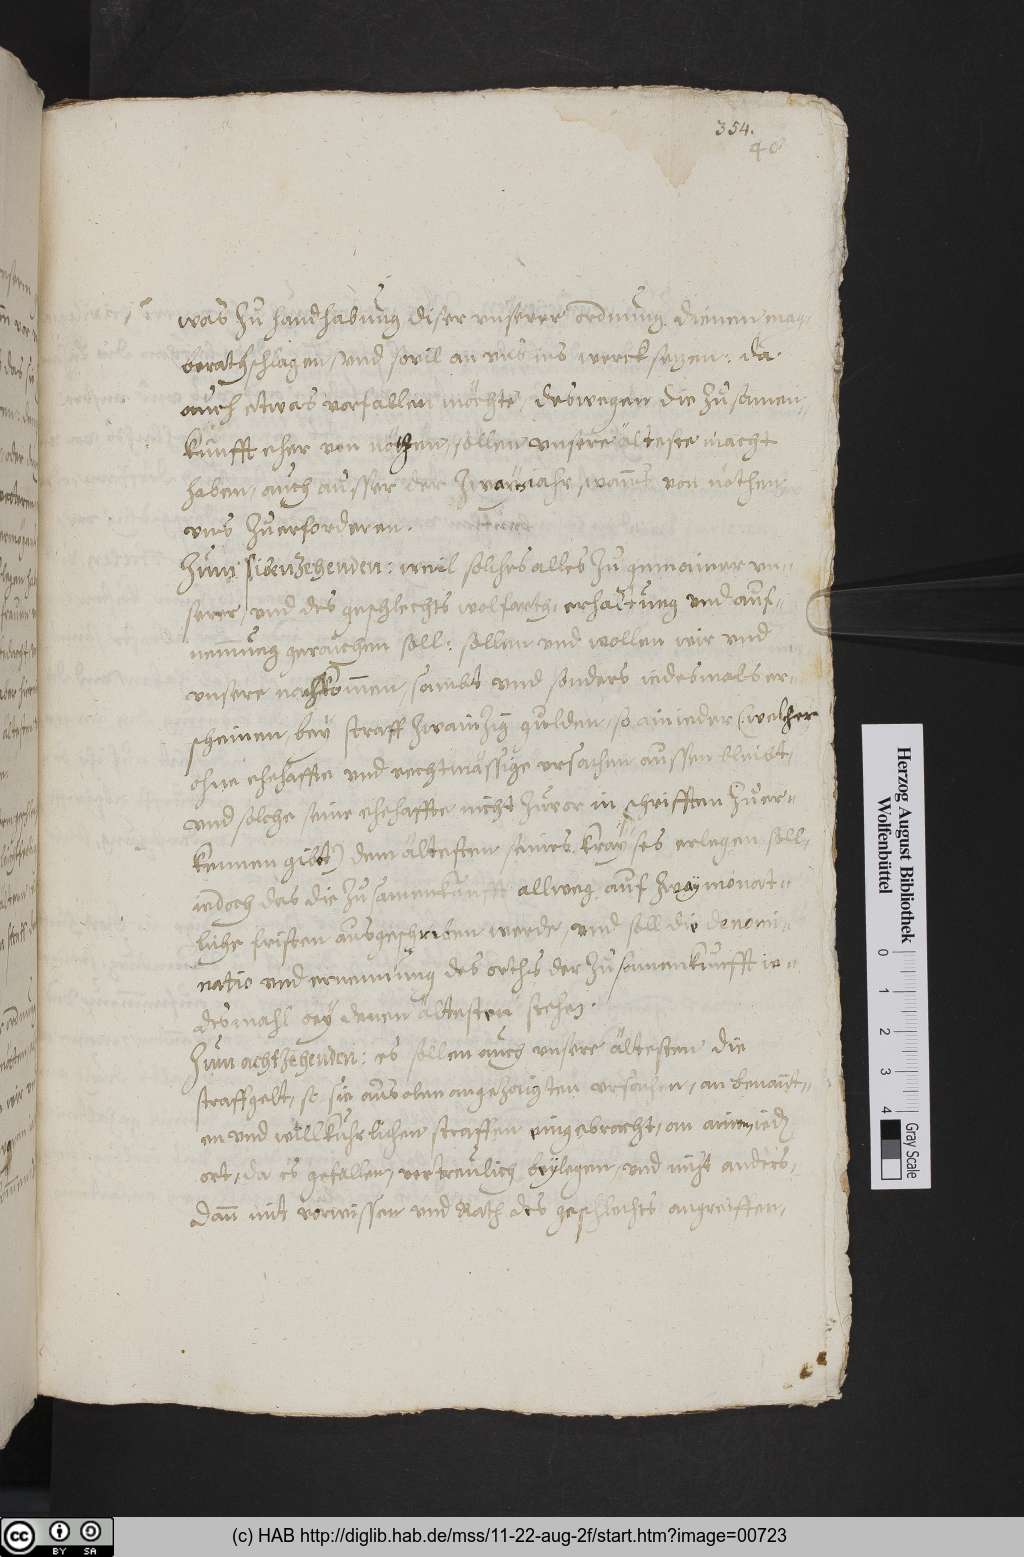 354.
40
was zu handhabung diser vnserer ordnung dienen mag,
berathschlagen, vnd sovil an vns ins werck setzen: da
auch etwas vorfallen möchte, deswegen die zusamen-
kunfft eher von nöthen, sollen vnsere älteste macht
haben, auch ausser der zway jahr, wanns von nöthen
vns zuerforderen.
Zum sibenzehenden: weil solches alles zu gemainer vn-
serer, vnd des geschlechts wolfarth, erhaltung vnd auf-
nemung geraichen soll: sollen vnd wollen wir vnd
vnsere nachkommen, sambt vnd sonders iedesmals er-
scheinen, bey straff zwainzig gulden, so ain ieder (welcher
ohne ehehaffte vnd rechtmässige vrsachen aussen bleibt,
vnd solche seine ehehaffte nicht zuvor in schrifften zuer-
kennen gibt) dem ältesten seines krayses erlegen soll,
iedoch das die zusamenkunfft allweg auf zway monat-
liche fristen ausgeschriben werde, vnd soll die denomi-
natio vnd ernennung des orths der zusamenkunfft ie-
desmahl bey denen ältesten stehen.
Zum achtzehenden: es sollen auch vnsere ältesten die
straffgelt, so sie aus oben angezaigten vrsachen, an benant-
en vnd willkuhrlichen straffen eingebracht, an ainem ied
ort, da es gefallen, vertreulich beylegen, vnd nicht anders,
dann mit vorwissen vnd Rath des geschlechts angreiffen,
Herzog August Bibliothek
Wolfenbüttel
0 1 2 3 4
Gray Scale
CC BY SA
(c) HAB http://diglib.hab.de/mss/11-22-aug-2f/start.htm?image=00723